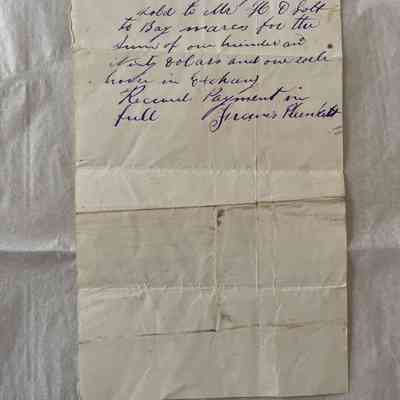 sold to Mr H D Solt
to Bay mares for the
sum of one hundred
Ninty Dollars and one
horse in Exchang
Received Payment in
full Plunkett